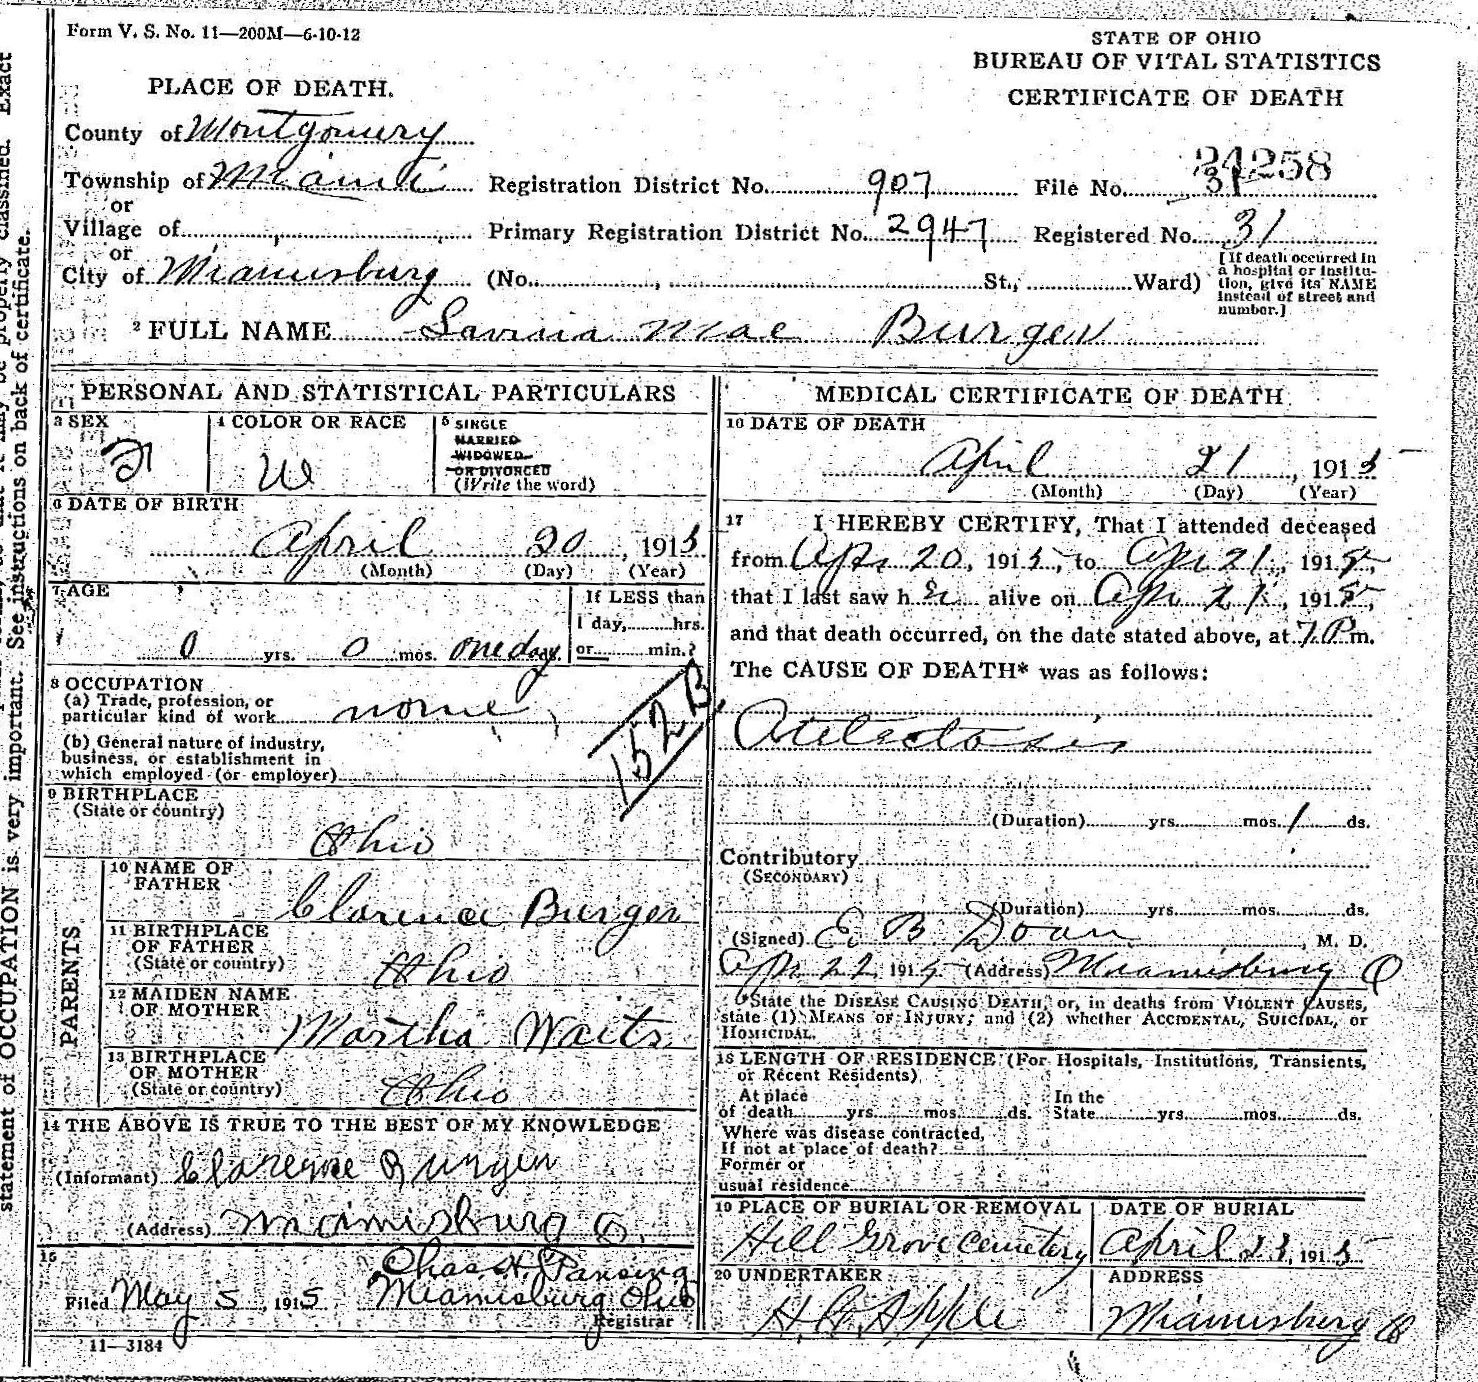 Form V. S. No. 11—200M—6-10-12
STATE OF OHIO
BUREAU OF VITAL STATISTICS
CERTIFICATE OF DEATH
PLACE OF DEATH.
County of Montgomery
Township of Miami Registration District No. 907 File No. 31 24258
or
Village of Primary Registration District No. 2947 Registered No. 31
or
City of Miamisburg (No. , St., Ward) [If death occurred in a hospital or institution, give its NAME instead of street and number.]
2 FULL NAME Lavina Mae Burger
PERSONAL AND STATISTICAL PARTICULARS
3 SEX F
4 COLOR OR RACE W
5 SINGLE
MARRIED
WIDOWED
OR DIVORCED
(Write the word)
6 DATE OF BIRTH
April 20, 1915
(Month) (Day) (Year)
7 AGE
0 yrs. 0 mos. one day
If LESS than
1 day, hrs.
or min.?
8 OCCUPATION
(a) Trade, profession, or
particular kind of work none
(b) General nature of industry,
business, or establishment in
which employed (or employer)
152B
9 BIRTHPLACE
(State or country)
Ohio
PARENTS
10 NAME OF
FATHER
Clarence Burger
11 BIRTHPLACE
OF FATHER
(State or country) Ohio
12 MAIDEN NAME
OF MOTHER
Martha Waits
13 BIRTHPLACE
OF MOTHER
(State or country) Ohio
14 THE ABOVE IS TRUE TO THE BEST OF MY KNOWLEDGE
(Informant) Clarence Burger
(Address) Miamisburg O.
15
Filed May 5, 1915 Chas. H. Pansing
Miamisburg Ohio
Registrar
11—3184
MEDICAL CERTIFICATE OF DEATH
16 DATE OF DEATH
April 21, 1915
(Month) (Day) (Year)
17 I HEREBY CERTIFY, That I attended deceased
from Apr 20, 1915, to Apr 21, 1915,
that I last saw h er alive on Apr 21, 1915,
and that death occurred, on the date stated above, at 7 P m.
The CAUSE OF DEATH* was as follows:
Atelectasis
(Duration) yrs. mos. 1 ds.
Contributory
(SECONDARY)
(Duration) yrs. mos. ds.
(Signed) E. B. Doan, M. D.
Apr 22 1915 (Address) Miamisburg O
*State the DISEASE CAUSING DEATH, or, in deaths from VIOLENT CAUSES,
state (1) MEANS OF INJURY; and (2) whether ACCIDENTAL, SUICIDAL, or
HOMICIDAL.
18 LENGTH OF RESIDENCE (For Hospitals, Institutions, Transients,
or Recent Residents)
At place In the
of death yrs. mos. ds. State yrs. mos. ds.
Where was disease contracted,
If not at place of death?
Former or
usual residence
19 PLACE OF BURIAL OR REMOVAL
Hill Grove Cemetery
DATE OF BURIAL
April 23, 1915
20 UNDERTAKER
ADDRESS
Miamisburg O
statement of OCCUPATION is very important. See instructions on back of certificate.